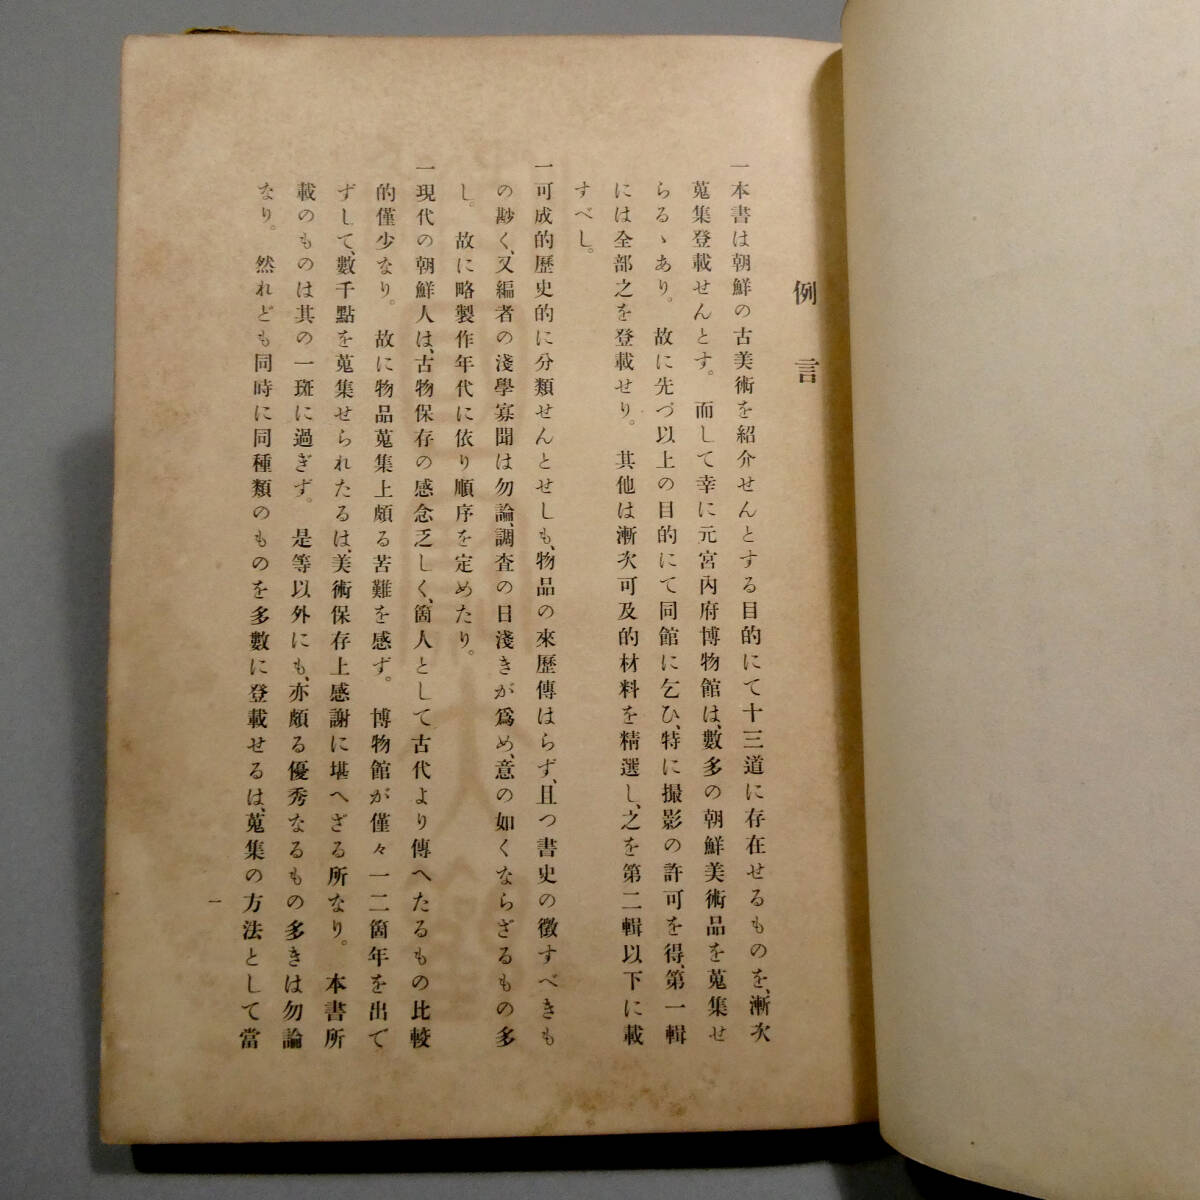 例言
一本書は朝鮮の古美術を紹介せんとする目的にて十三道に存在せるものを、漸次
蒐集登載せんとす。而して幸に元宮內府博物館は、數多の朝鮮美術品を蒐集せ
らるゝあり。故に先づ以上の目的にて同館に乞ひ、特に撮影の許可を得、第一輯
には全部之を登載せり。其他は漸次可及的材料を精選し、之を第二輯以下に載
すべし。
一可成的歷史的に分類せんとせしも、物品の來歷傳はらず、且つ書史の徵すべきも
の尠く、又編者の淺學寡聞は勿論、調査の日淺きが爲め、意の如くならざるもの多
し。故に略製作年代に依り順序を定めたり。
一現代の朝鮮人は、古物保存の感念乏しく、箇人として古代より傳へたるもの比較
的僅少なり。故に物品蒐集上頗る苦難を感ず。博物館が僅々一二箇年を出で
ずして、數千點を蒐集せられたるは、美術保存上感謝に堪へざる所なり。本書所
載のものは其の一斑に過ぎず。是等以外にも、亦頗る優秀なるもの多きは勿論
なり。然れども同時に同種類のものを多數に登載せるは、蒐集の方法として當
一